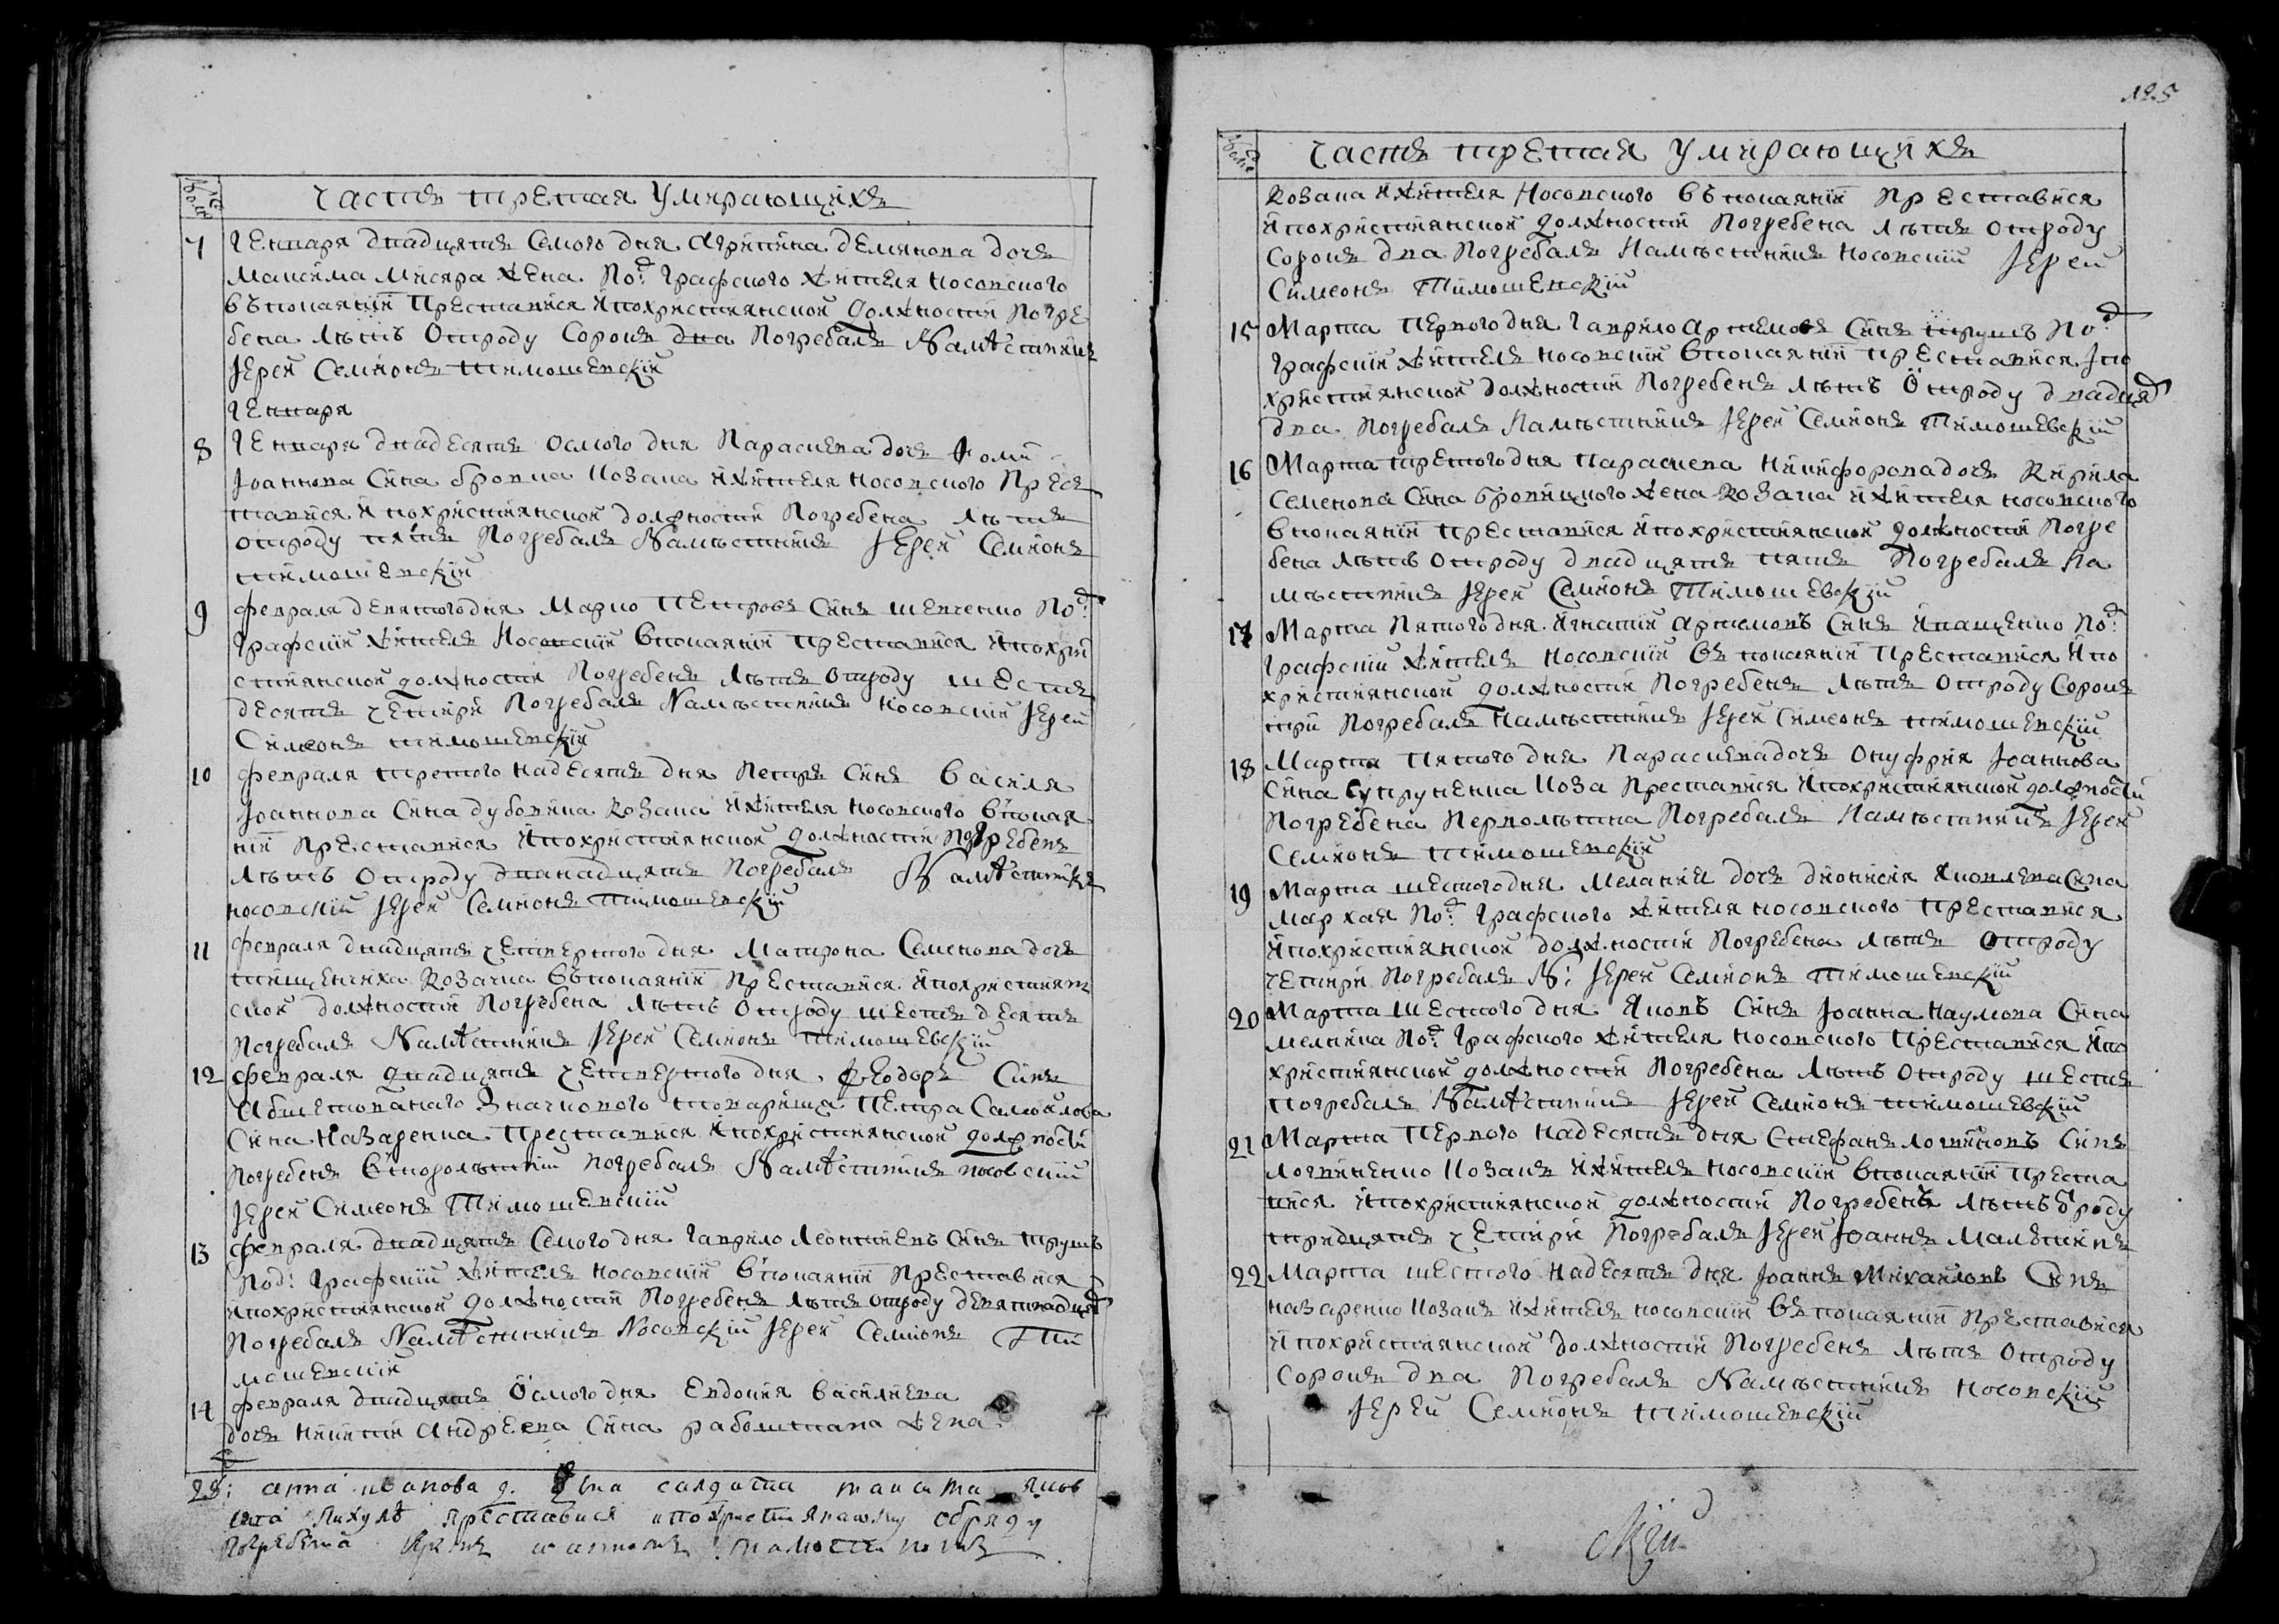 Часть третая Умирающихъ
7 Генваря двадцять Семого дня Агрипина Демянова дочь
Максима Мисяра жена Под: Графского жителя Носовского
въ покаянїи Преставися и по християнской должности Погре
бена лѣтъ Отроду Сорокъ два Погребалъ Намѣстникъ
Іерей Семионъ Тимошевскїй
Генваря
8 Генваря двадесять осмого дня Параскева дочь Фоми
Іоаннова Сина Козака и жителя Носовского Прес
тавися и по християнской должности Погребена лѣтъ
отроду пять Погребалъ Намѣстникъ Іерей Семионъ
тимошевскїй
9 февраля девятого дня Марко Петровъ Синъ Шевченко Под:
Графскїй житель Носовскїй в покаянїи Преставися и по хри
стиянской должности Погребенъ лѣтъ отроду шесть
десятъ чотири Погребалъ Намѣстникъ Носовскїй Іерей
Симеонъ тимошевскїй
10 февраля третого надесять дня Петръ Синъ Василя
Іоаннова Сина дубовика Козака и жителя Носовского в покая
нїи Преставися и по християнской должности Погребенъ
лѣтъ Отроду дванадцять Погребалъ Намѣстникъ
носовскїй Іерей Семионъ Тимошевскїй
11 февраля двадцять четвертого дня Матрона Семенова дочь
Козачка въ покаянїи Преставися и по християн
ской должности Погребена лѣтъ Отроду шестьдесятъ
Погребалъ Намѣстникъ Іерей Семионъ Тимошевскїй
12 февраля двадцять четвертого дня Феодоръ Синъ
Абшетованаго Значкового товариша Петра Самойлова
Сина Назаренка Преставися и по християнской должности
Погребенъ второлѣтнїй погребалъ Намѣстникъ носовскїй
Іерей Симеонъ Тимошевскїй
13 февраля двадцять Семого дня Гаврило Леонтиевъ Синъ Трушъ
Под: Графскїй житель носовскїй в покаянїи Преставися
и по християнской должности Погребенъ лѣтъ отроду девятнадцят
Погребалъ Намѣстникъ Носовскїй Іерей Семионъ Ти
мошевскїй
14 февраля двадцять Осмого дня Евдокия Василиева
дочь Никити Андреева Сина работпана жена
23: анна иванова д. жена салдата
преставися и по християнскому обряду
погребена

125
Часть третая Умирающихъ
Козака и жителя Носовского въ покаянїи Преставися
и по християнской должности Погребена лѣтъ отроду
Сорокъ два Погребалъ Намѣстникъ Носовскїй Іерей
Симеонъ Тимошевскїй
15 Марта Первого дня Гаврило Артемовъ Синъ трушъ Под:
Графскїй житель носовскїй в покаянїи преставися и по
християнской должности Погребенъ лѣтъ Отроду двадцят
два Погребалъ Намѣстникъ Іерей Семионъ Тимошевскїй
16 Марта третого дня Параскева Никифорова дочь Кирила
Семенова Сина жена Козака и жителя носовского
в покаянїи преставися и по християнской должности Погре
бена лѣтъ отроду двадцять пять Погребалъ На
мѣстникъ Іерей Семионъ Тимошевскїй
17 Марта Пятого дня Игнатїй Артемовъ Синъ Иващенко Под:
Графскїй житель Носовскїй въ покаянїи Преставися и по
християнской должности Погребенъ лѣтъ отроду Сорокъ
три Погребалъ Намѣстникъ Іерей Симеонъ тимошевскїй
18 Марта Пятого дня Параскева дочь Онуфрия Іоаннова
Сина Супруненка Коза Преставися и по християнской должности
Погребена Перволѣтна Погребалъ Намѣстникъ Іерей
Семионъ тимошевскїй
19 Марта шестого дня Мелания дочь Дионисия Яковлева Сина
Мархая Под: Графского жителя носовского преставися
и по християнской должности Погребена лѣтъ Отроду
чотири Погребалъ Н: Іерей Семионъ Тимошевскїй
20 Марта шестого дня Яковъ Синъ Іоанна Наумова Сина
мелника Под: Графского жителя носовского Преставися и по
християнской должности Погребена лѣтъ отроду шесть
Погребалъ Намѣстникъ Іерей Семионъ тимошевскїй
21 Марта Первого надесять дня Стефанъ логвиновъ Синъ
логвиненко Козакъ и житель носовскїй в покаянїи Преста
вися и по християнской должности Погребенъ лѣтъ ѿроду
тридцять чотири Погребалъ Іерей Іоаннъ Малышинъ
22 Марта шестого надесять дня Іоаннъ Михаиловъ Синъ
назаренко Козакъ и житель носовскїй въ покаянїи Преставися
и по християнской должности Погребенъ лѣтъ Отроду
Сорокъ два Погребалъ Намѣстникъ Носовскїй
Іерей Семионъ тимошевскїй
скїй